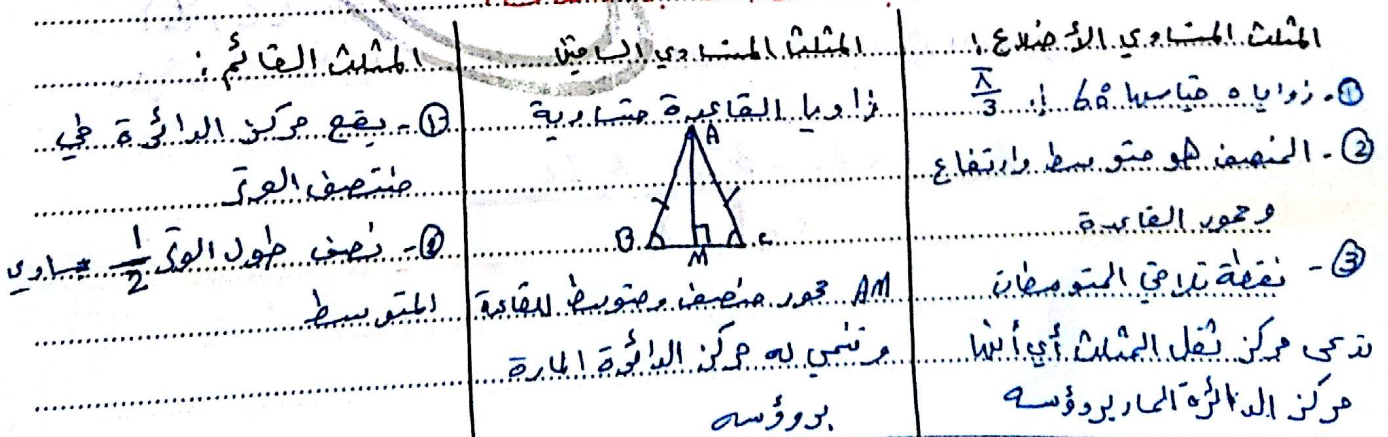 المثلث المتساوي الأضلاع:
① - زواياه قياسها 60° أ, π/3
② - المنصف هو متوسط وارتفاع
ومحور القاعدة
③ - نقطة تلاقي المتوسطات
تدعى مركز ثقل المثلث أي أنها
مركز الدائرة المار برؤوسه
المثلث المتساوي الساقين
زاويا القاعدة متساوية
A
B C
M
AM محور منصف ومتوسط للقاعدة
وتنتمي له مركز الدائرة المارة
برؤوسه
المثلث القائم:
① - يقع مركز الدائرة في
منتصف الوتر
② - نصف طول الوتر 1/2 يساوي
المتوسط